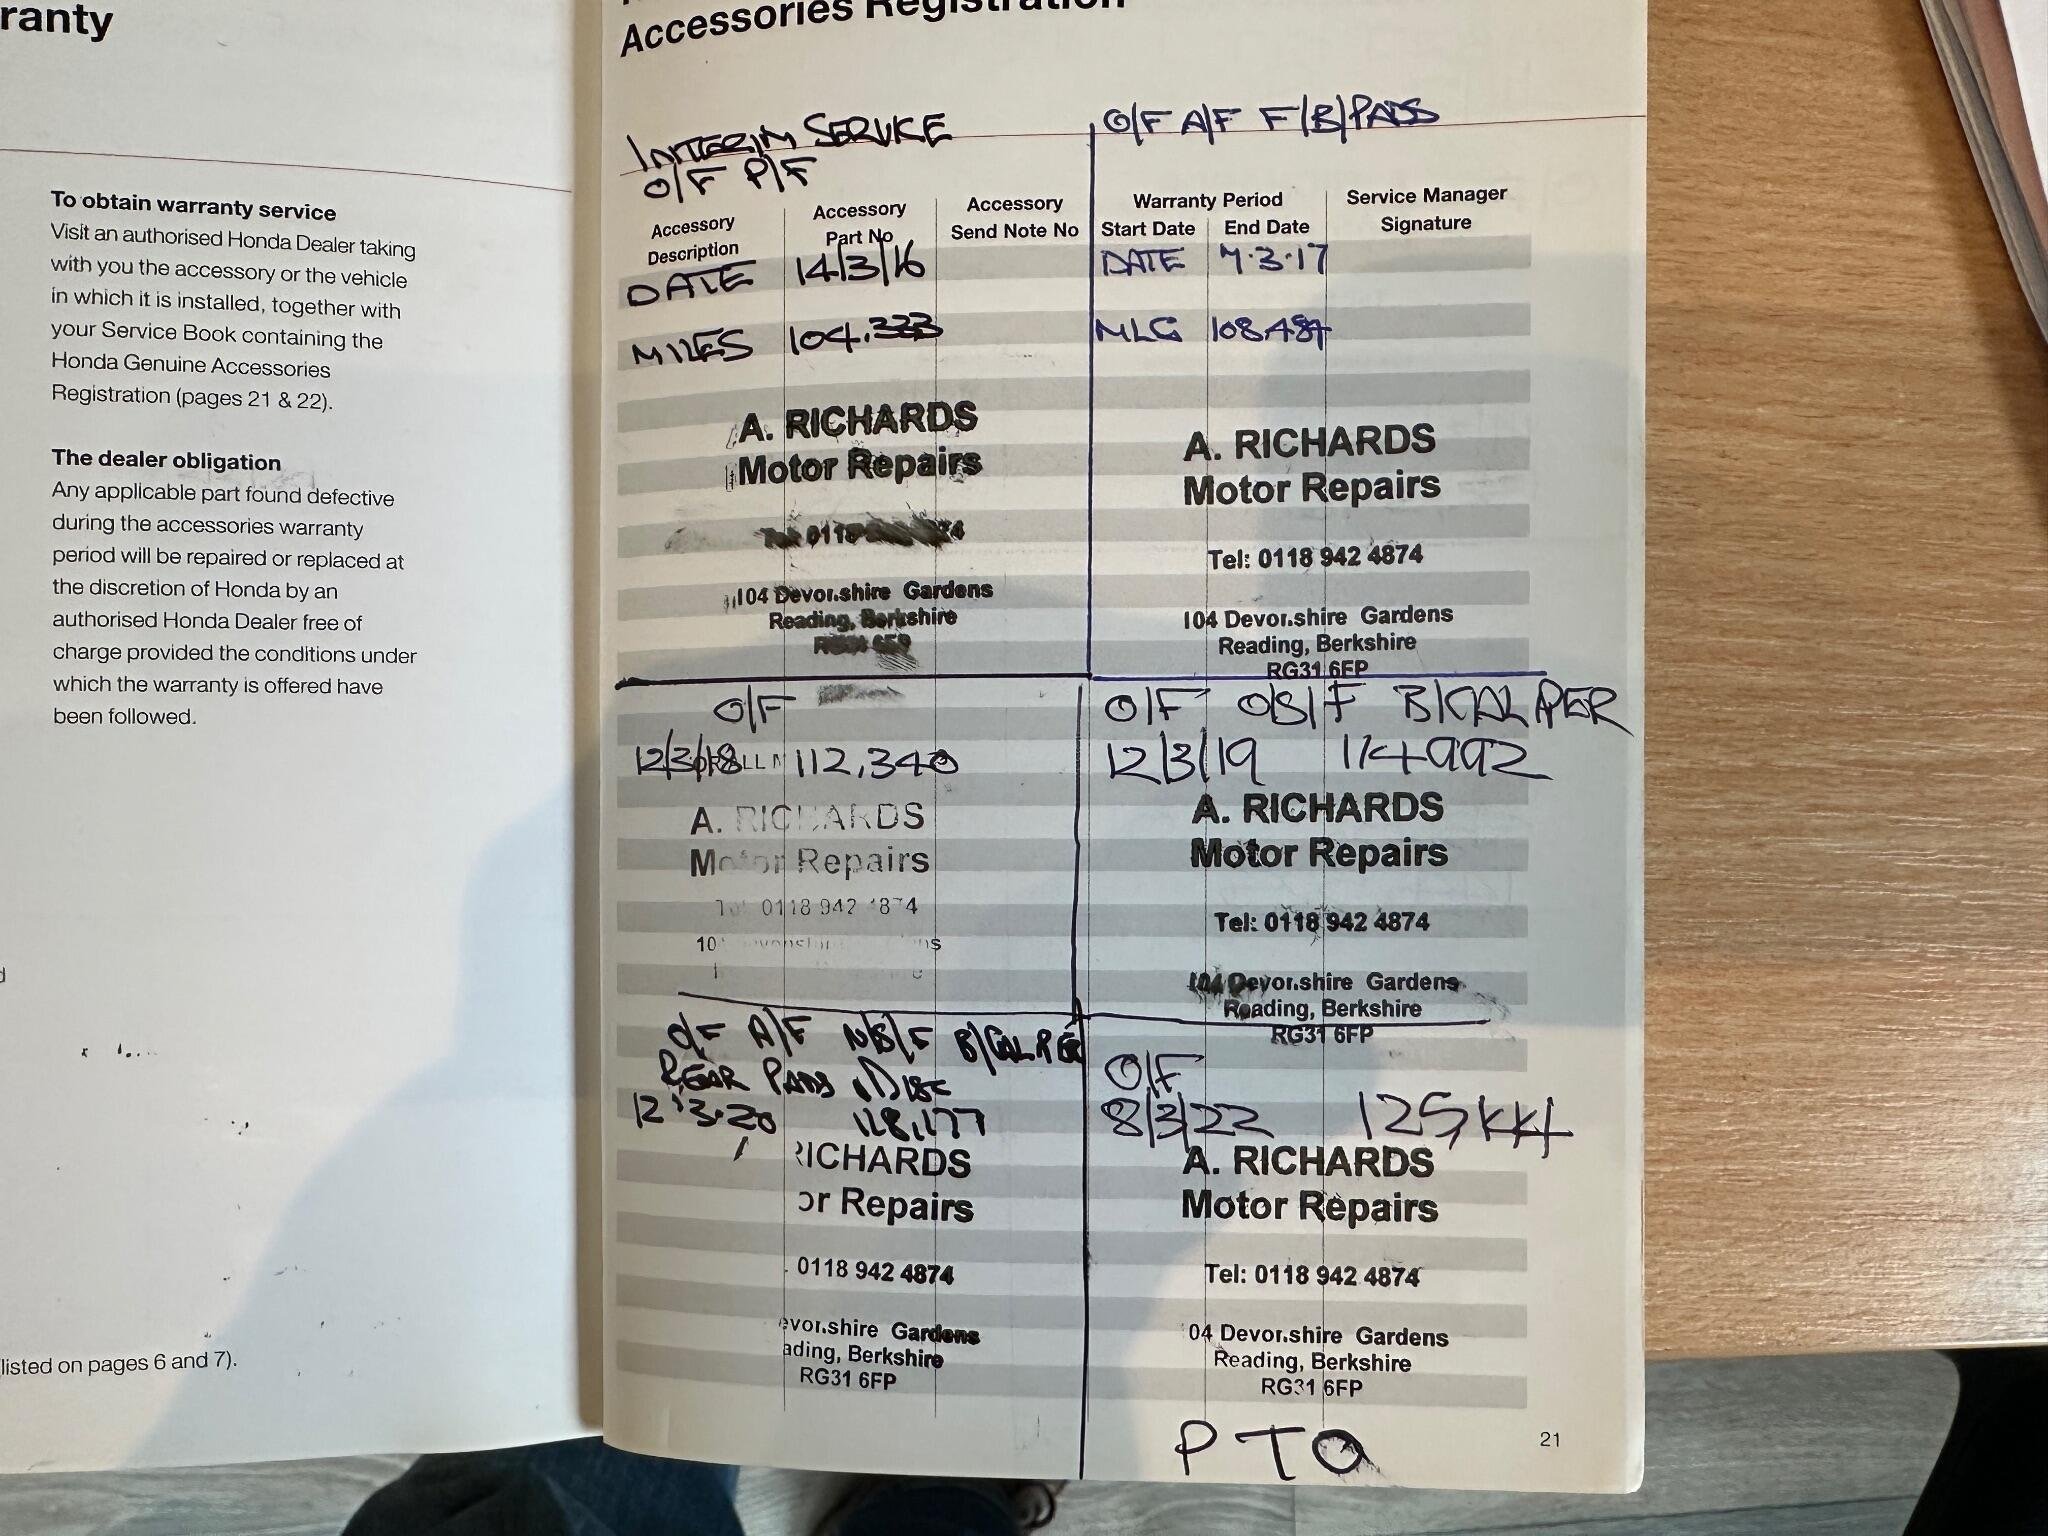 ranty
To obtain warranty service
Visit an authorised Honda Dealer taking
with you the accessory or the vehicle
in which it is installed, together with
your Service Book containing the
Honda Genuine Accessories
Registration (pages 21 & 22).
The dealer obligation
Any applicable part found defective
during the accessories warranty
period will be repaired or replaced at
the discretion of Honda by an
authorised Honda Dealer free of
charge provided the conditions under
which the warranty is offered have
been followed.
listed on pages 6 and 7).
Accessories Registration
INTERIM SERVICE
O/F P/F
O/F A/F F/B/PADS
Accessory
Description
Accessory
Part No
Accessory
Send Note No
Warranty Period
Start Date
End Date
Service Manager
Signature
DATE 14/3/16
MILES 104.333
A. RICHARDS
Motor Repairs
0118
104 Devor.shire Gardens
Reading, Berkshire
DATE 7.3.17
MLG 108.487
A. RICHARDS
Motor Repairs
Tel: 0118 942 4874
104 Devor.shire Gardens
Reading, Berkshire
RG31 6FP
O/F
12/3/18 112,340
A. RICHARDS
Motor Repairs
0118 942 4874
O/F O/S/F B/CALIPER
12/3/19 114992
A. RICHARDS
Motor Repairs
Tel: 0118 942 4874
104 Devor.shire Gardens
Reading, Berkshire
RG31 6FP
O/F A/F N/S/F B/CALIPER
REAR PADS DISC
12.3.20 118,177
RICHARDS
or Repairs
0118 942 4874
evor.shire Gardens
ading, Berkshire
RG31 6FP
O/F
8/3/22
A. RICHARDS
Motor Repairs
Tel: 0118 942 4874
04 Devor.shire Gardens
Reading, Berkshire
RG31 6FP
PTO
21